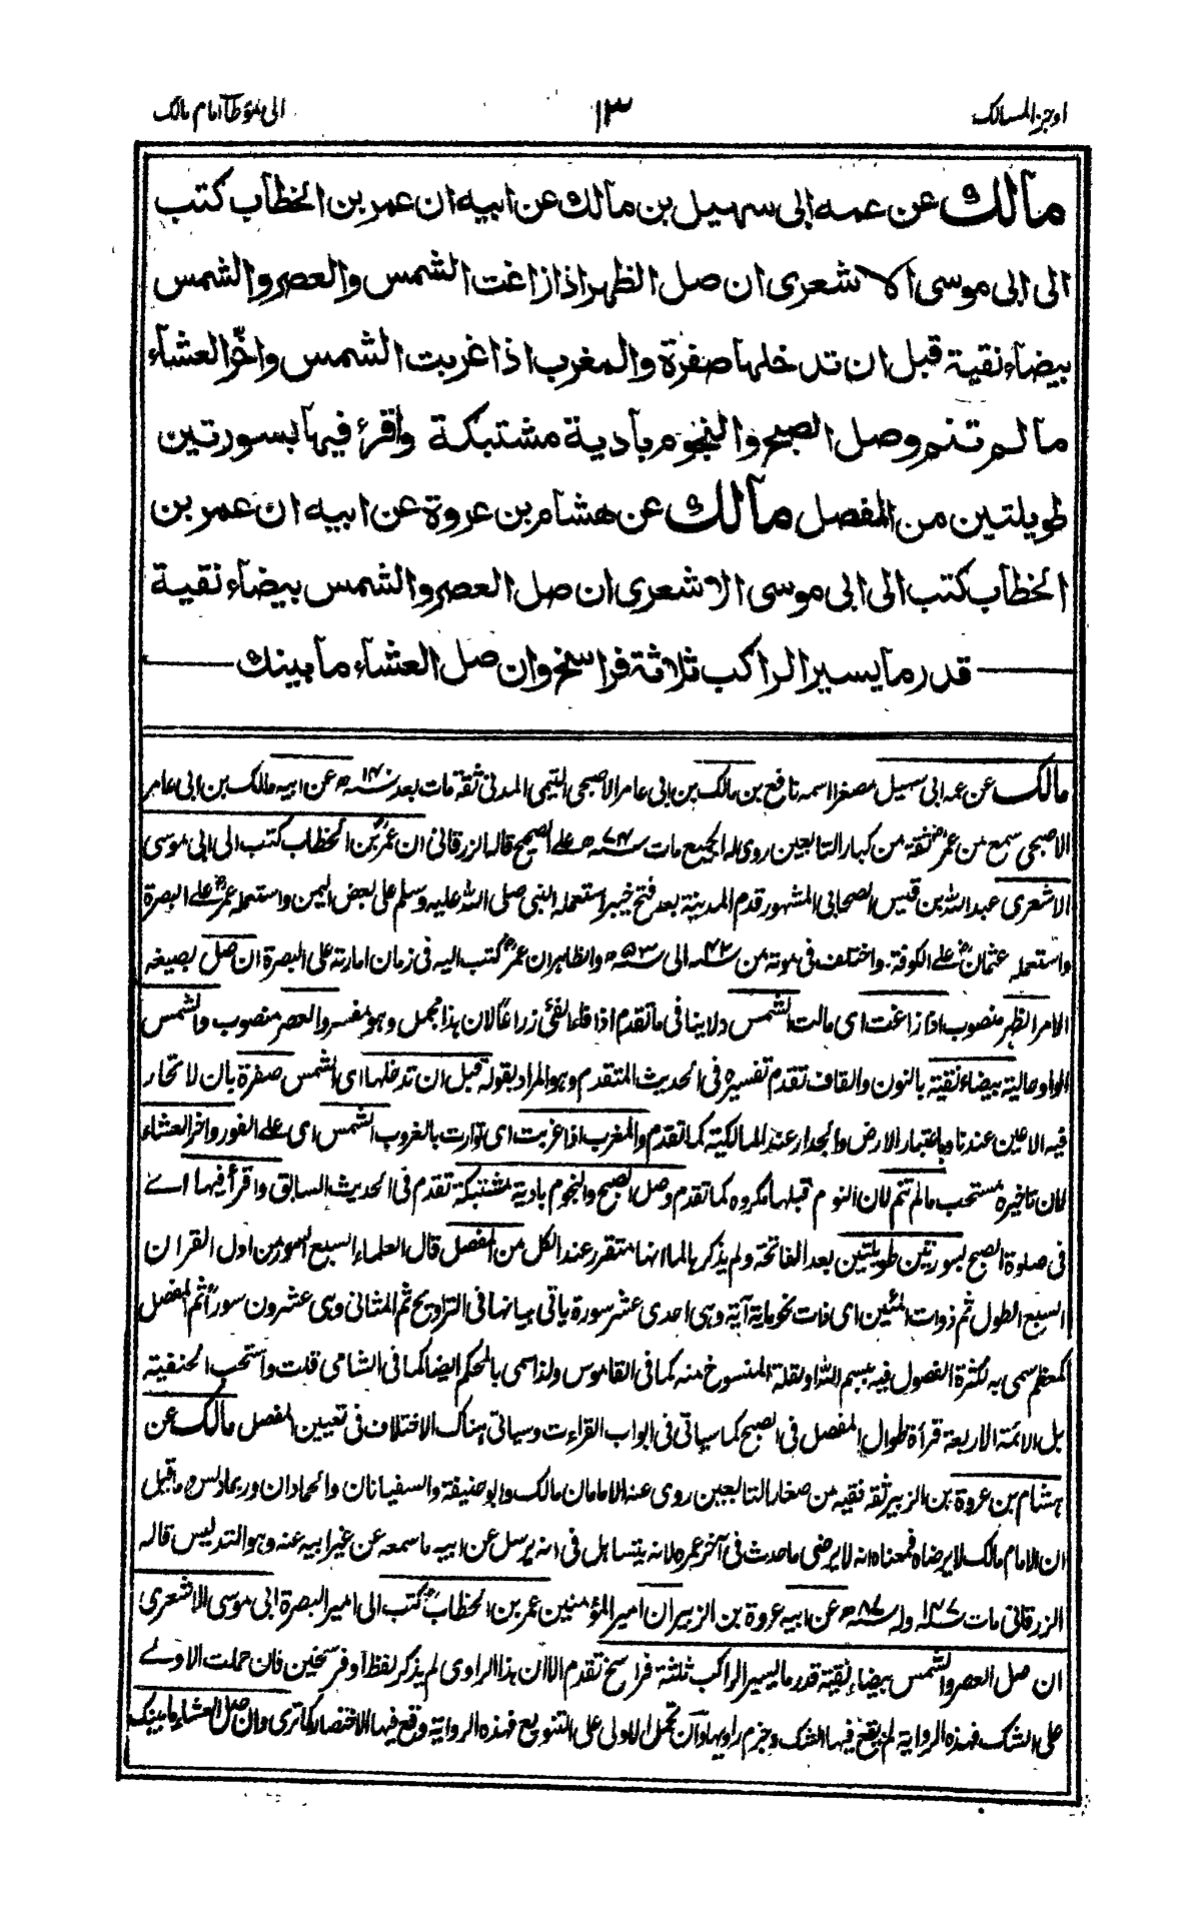 اوجز المسالك
١٣
الى مؤطا امام مالك
مالك عن عمه ابى سهيل بن مالك عن ابيه ان عمر بن الخطاب كتب
الى ابى موسى الاشعرى ان صل الظهر اذا زاغت الشمس والعصر والشمس
بيضاء نقية قبل ان تدخلها صفرة والمغرب اذا غربت الشمس واخّر العشاء
ما لم تنم وصل الصبح والنجوم بادية مشتبكة واقرأ فيها بسورتين
طويلتين من المفصل مالك عن هشام بن عروة عن ابيه ان عمر بن
الخطاب كتب الى ابى موسى الاشعرى ان صل العصر والشمس بيضاء نقية
قدر ما يسير الراكب ثلاثة فراسخ وان صل العشاء ما بينك
مالك عن عمه ابى سهيل مصغرا اسمه نافع بن مالك بن ابى عامر الاصبحى التيمى المدنى ثقة مات بعد سنة ١٤٠ه عن ابيه مالك بن ابى عامر
الاصبحى سمع من عمر ثقة من كبار التابعين روى له الجميع مات سنة ٧٤ه على الصحيح قاله الزرقانى ان عمر بن الخطاب كتب الى ابى موسى
الاشعرى عبد الله بن قيس الصحابى المشهور قدم المدينة بعد فتح خيبر استعمله النبى صلى الله عليه وسلم على بعض اليمن واستعمله عمر على البصرة
واستعمله عثمان على الكوفة واختلف فى موته من سنة ٤٢ه الى سنة ٥٣ه والظاهر ان عمر كتب اليه فى زمان امارته على البصرة ان صل بصيغة
الامر الظهر منصوب اذا زاغت اى مالت الشمس ولا ينافى ما تقدم اذا فاء الفئ ذراعا لان هذا مجمل وهو مفسر والعصر منصوب والشمس
الواو حالية بيضاء نقية بالنون والقاف تقدم تفسيره فى الحديث المتقدم وهو المراد بقوله قبل ان تدخلها اى الشمس صفرة بان لا تحار
فيه الاعين عندنا وباعتبار الارض والجدار عند المالكية كما تقدم والمغرب اذا غربت اى توارت بالغروب الشمس اى على الفور واخر العشاء
لان تاخيره مستحب مالم تنم لان النوم قبلها مكروه كما تقدم وصل الصبح والنجوم بادية مشتبكة تقدم فى الحديث السابق واقرأ فيها اى
فى صلوة الصبح بسورتين طويلتين بعد الفاتحة ولم يذكرها لما انها متقرر عند الكل من المفصل قال العلماء السبع السور من اول القران
السبع الطول ثم ذوات المئين اى ذات نحو مائة آية وهى احدى عشر سورة ياتى بيانها فى التراويح ثم المثانى وهى عشرون سورا ثم المفصل
كمعظم سمى به لكثرة الفصول فيه ببسم الله او لقلة المنسوخ منه كما فى القاموس ولذا سمى بالمحكم ايضا كما فى الشامى قلت واستحب الحنفية
بل الائمة الاربعة قرأة طوال المفصل فى الصبح كما سياتى فى ابواب القراءت وسياتى هناك الاختلاف فى تعيين المفصل مالك عن
هشام بن عروة بن الزبير ثقه فقيه من صغار التابعين روى عنه الامامان مالك وابو حنيفة والسفيانان والحمادان وربما دلس وما قيل
ان الامام مالك لا يرضاه فمعناه انه لا يرضى ما حدث فى آخر عمره لانه يتساهل فى انه يرسل عن ابيه ما سمعه عن غير ابيه عنه وهو التدليس قاله
الزرقانى مات سنة ١٤٧ وله سنة ٨٧ه عن ابيه عروة بن الزبير ان امير المؤمنين عمر بن الخطاب كتب الى امير البصرة ابى موسى الاشعرى
ان صل العصر والشمس بيضاء نقية قدر ما يسير الراكب ثلثة فراسخ تقدم الا ان هذا الراوى لم يذكر لفظ او فرسخين فان حملت الاولى
على الشك فهذه الرواية لم يقع فيها الشك وجزم راويها وان تحمل الاولى على التنويع فهذه الرواية وقع فيها الاختصار كما ترى وان صل العشاء ما بينك